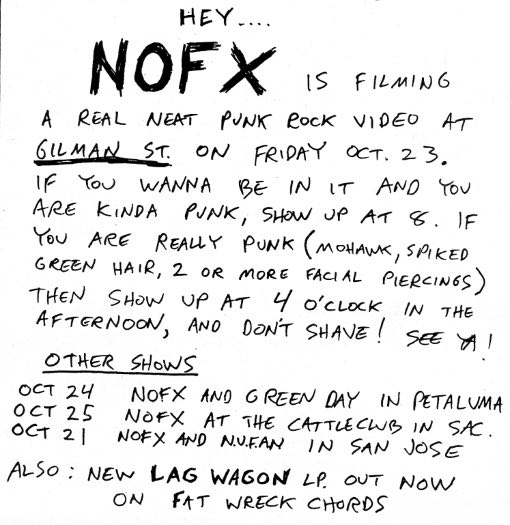 HEY....
NOFX IS FILMING
A REAL NEAT PUNK ROCK VIDEO AT
GILMAN ST. ON FRIDAY OCT. 23.
IF YOU WANNA BE IN IT AND YOU
ARE KINDA PUNK, SHOW UP AT 8. IF
YOU ARE REALLY PUNK (MOHAWK, SPIKED
GREEN HAIR, 2 OR MORE FACIAL PIERCINGS)
THEN SHOW UP AT 4 O'CLOCK IN THE
AFTERNOON, AND DON'T SHAVE! SEE YA!
OTHER SHOWS
OCT 24 NOFX AND GREEN DAY IN PETALUMA
OCT 25 NOFX AT THE CATTLECLUB IN SAC.
OCT 21 NOFX AND N.U.F.AN IN SAN JOSE
ALSO: NEW LAG WAGON LP. OUT NOW
ON FAT WRECK CHORDS